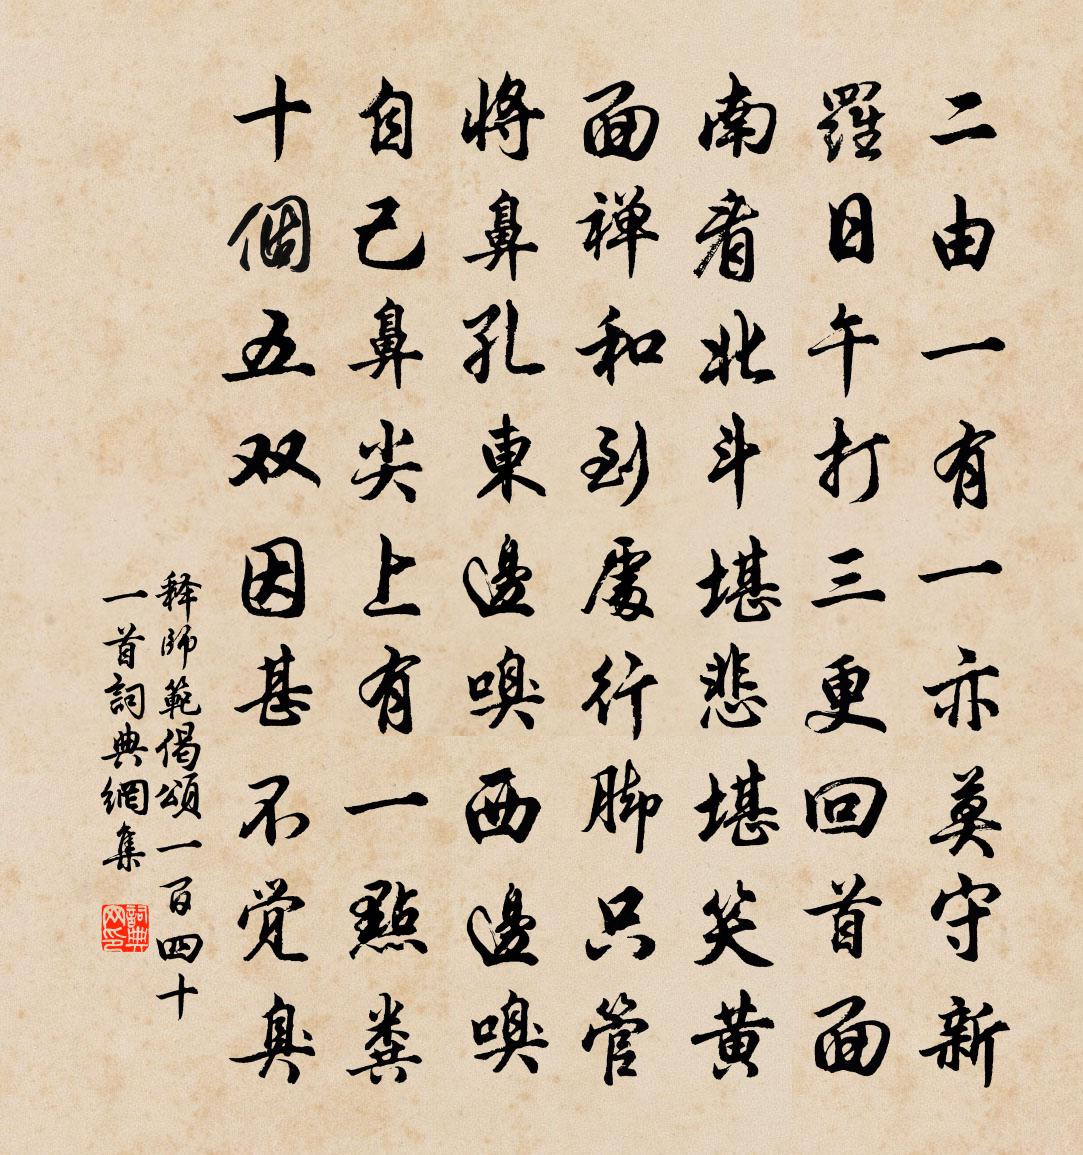 二由一有一亦莫守新
羅日午打三更回首面
南看北斗堪悲堪笑黄
面禅和到處行脚只管
將鼻孔東邊嗅西邊嗅
自己鼻尖上有一點粪
十個五双因甚不觉臭
释師範偈頌一百四十
一首詞典網集
詞典网印